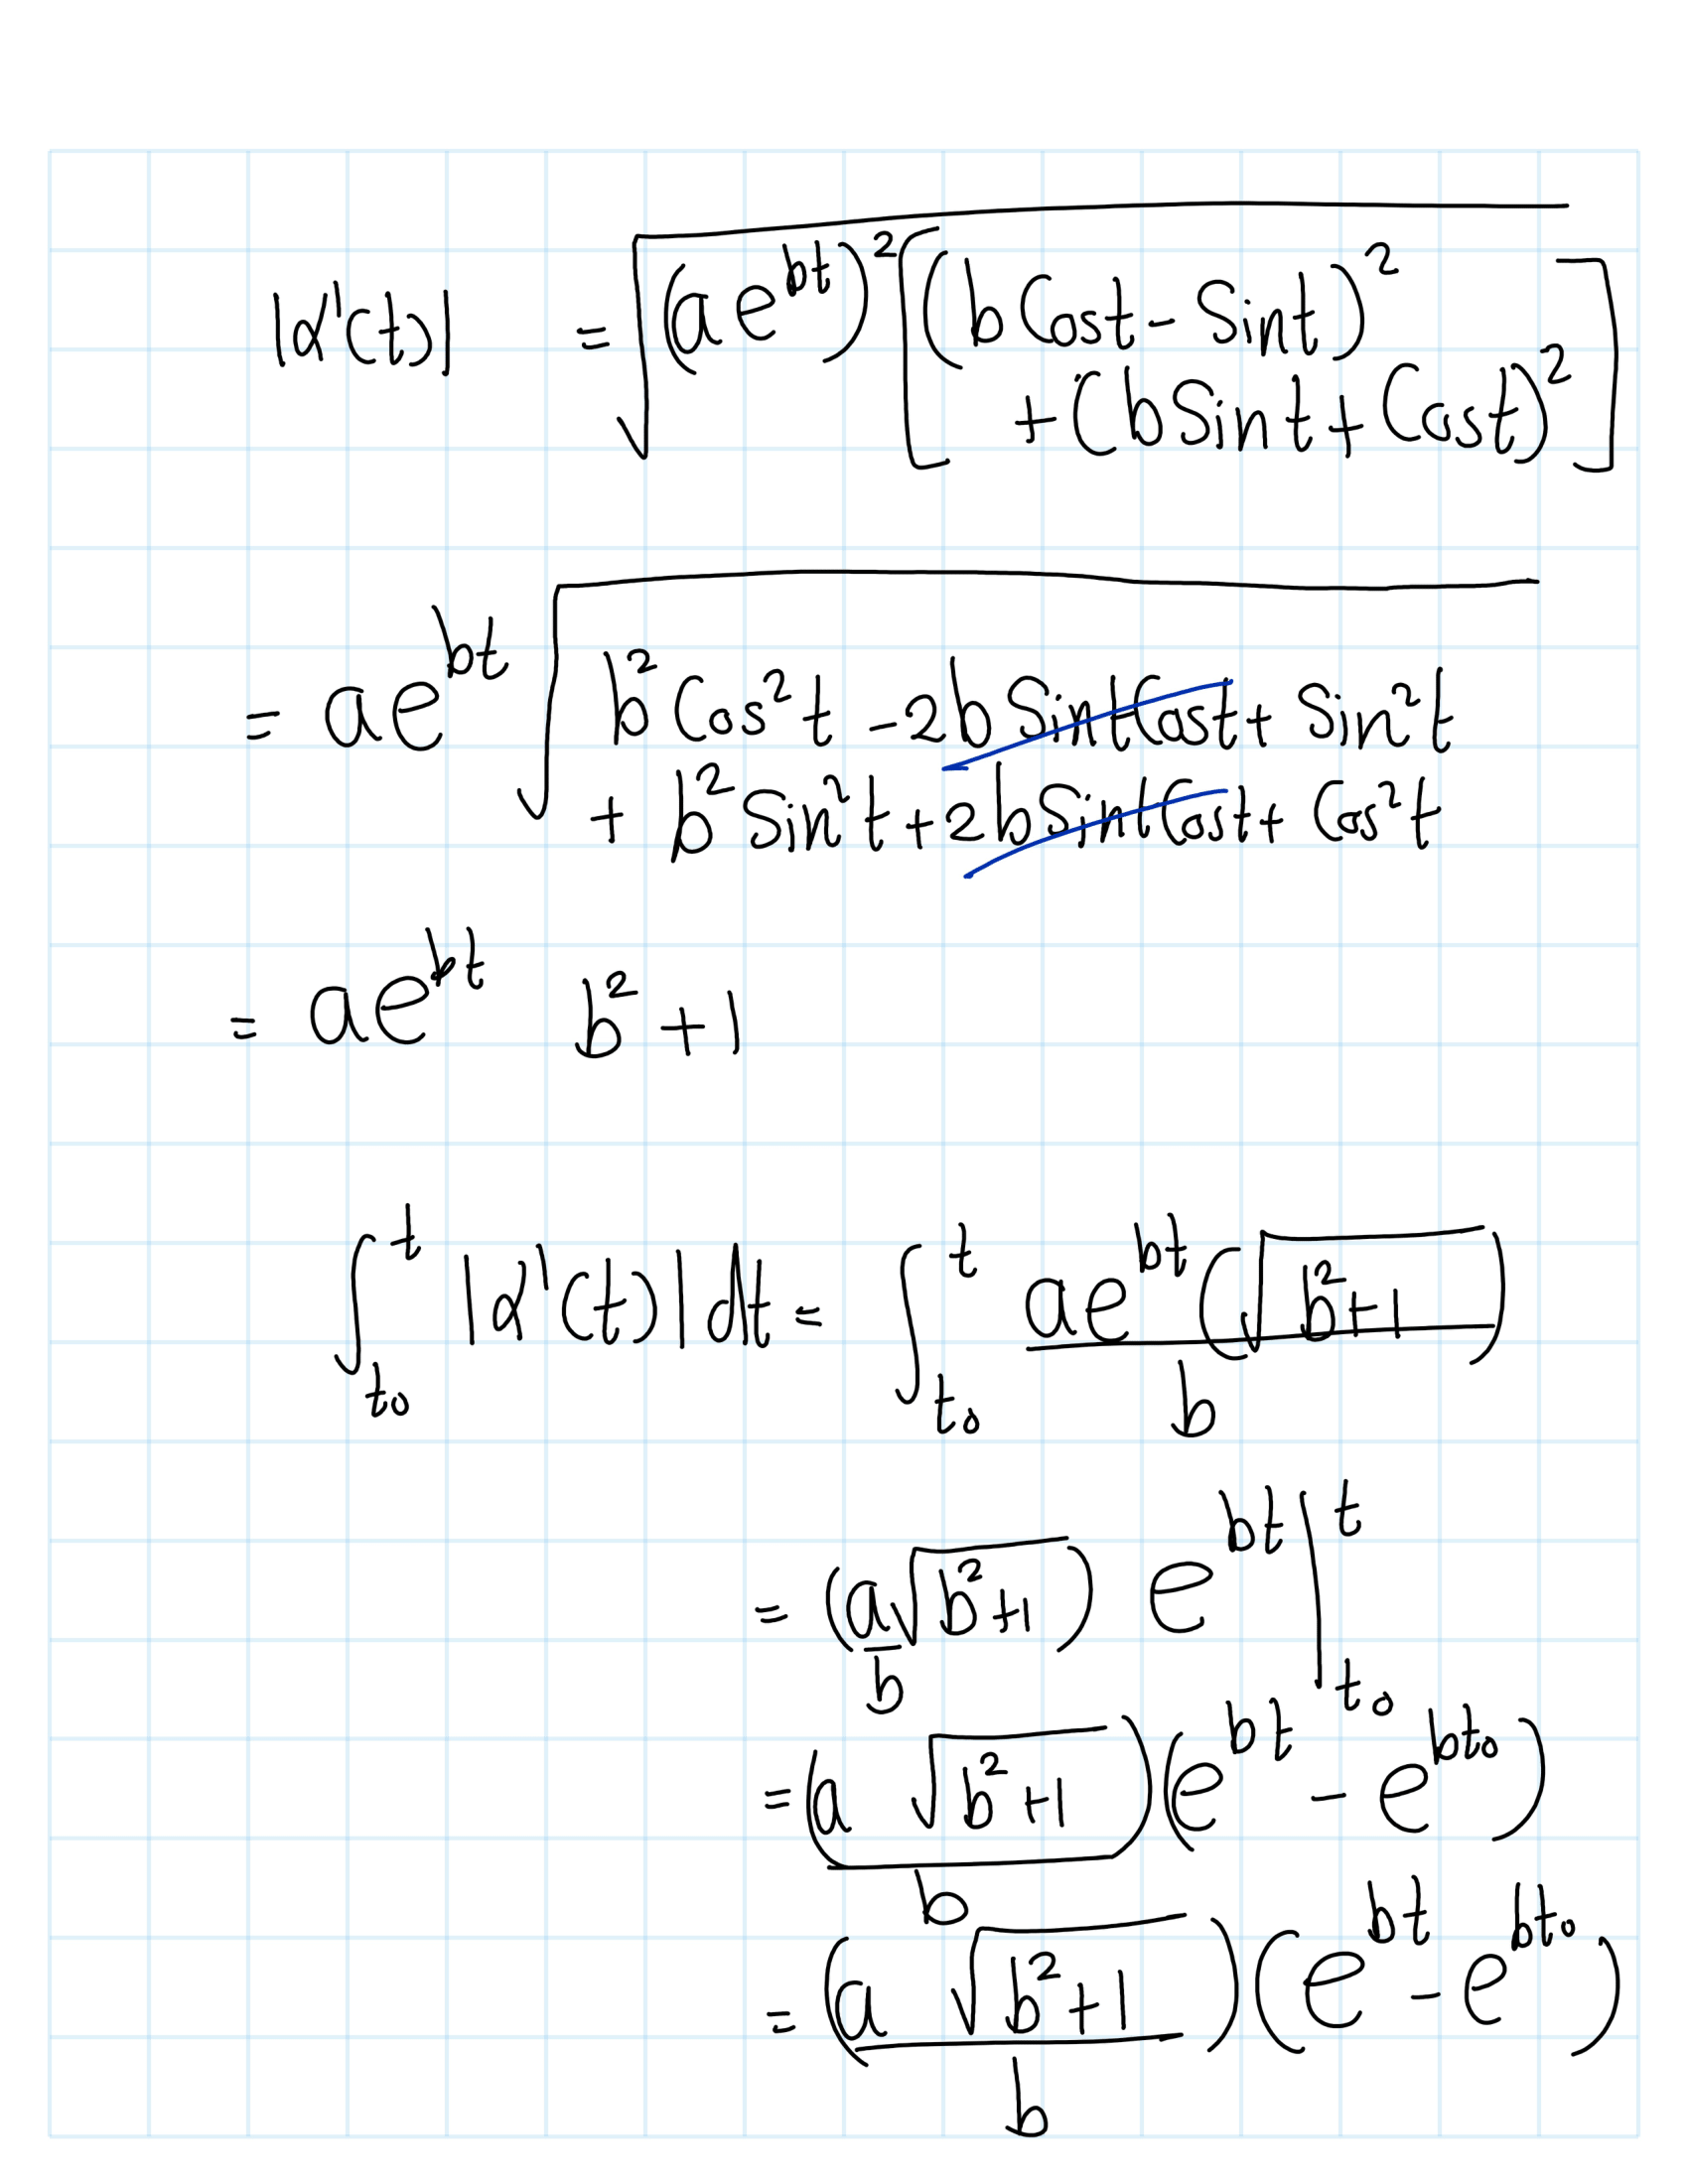 |α'(t)| = √(ae^{bt})²[(bCost - Sint)²
+ (bSint + Cost)²]
= ae^{bt} √b²Cos²t - 2bSintCost + Sin²t
+ b²Sin²t + 2bSintCost + Cos²t
= ae^{bt} b² + 1
∫_{t₀}^{t} |α'(t)| dt = ∫_{t₀}^{t} ae^{bt}(√b²+1) / b
= (a/b √b²+1) e^{bt} |_{t₀}^{t}
= (a √b²+1)/b (e^{bt} - e^{bt₀})
= (a √b²+1)/b (e^{bt} - e^{bt₀})